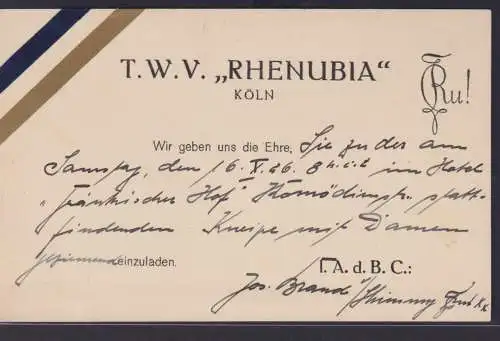 T.W.V. „RHENUBIA“
KÖLN
Ru!
Wir geben uns die Ehre, Sie zu der am
Samstag, den 16. X. 26. 8 h. c. t. im Hotel
„Fränkischer Hof" Komödienstr. statt-
findenden Kneipe mit Damen
geziemend einzuladen.
I. A. d. B. C.:
Jos. Brand